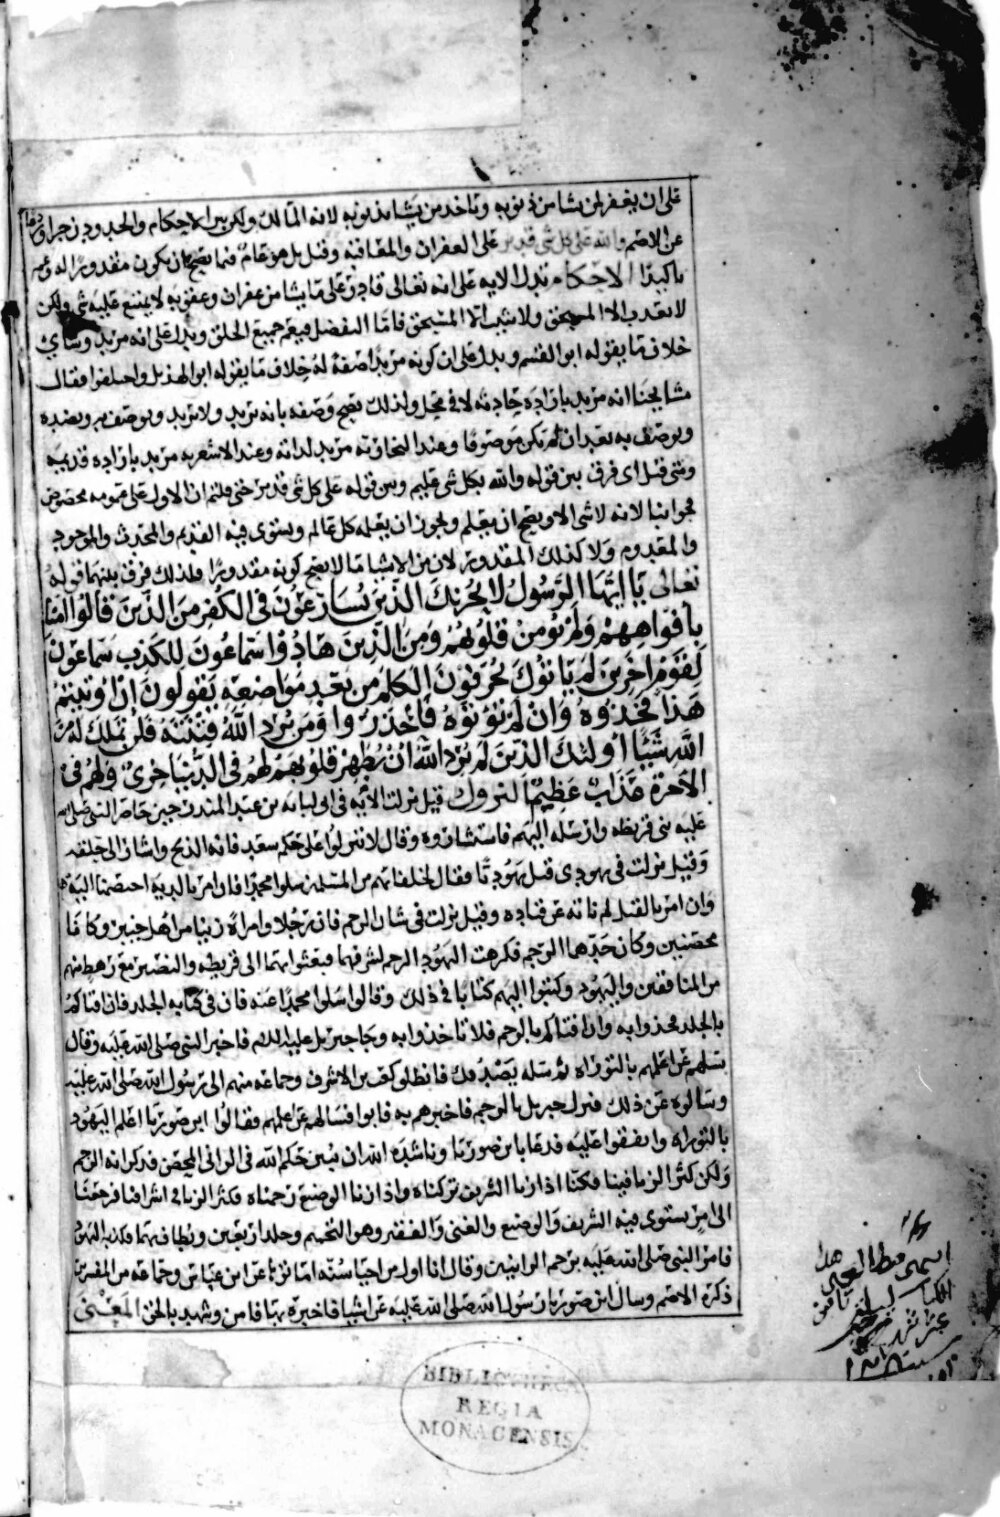 على ان يغفر لمن يشا من ذنوبه وياخذ من يشا بذنوبه لانه المالك ولكن بين الاحكام والحدود زجرا
عن الاصم والله على كل شي قدير على الغفران والمعاقبة وقيل بل هو عام فيما يصح ان يكون مقدورا له
تاكيدا الاحكام تدل الايه على انه تعالى قادر على ما يشا من غفران وعقوبه لا يمتنع عليه شي ولكن
لا يعذب الا المستحق ولا يثيب الا المستحق فاما التفضل فيعم جميع الخلق ويدل على انه مريد
خلاف ما يقوله ابو القسم ويدل على ان كونه مريدا صفة له خلاف ما يقوله ابو الهذيل واختلفوا فقال
مشايخنا انه مريد بارادة حادثة لا في محل ولذلك يصح وصفه بانه يريد ولا يريد ويوصف به وبضده
ويوصف به بعد ان لم يكن موصوفا وعند النجارية مريد لذاته وعند الاشعرية مريد بارادة قديمة
ومتى قيل اي فرق بين قوله والله بكل شي عليم وبين قوله على كل شي قدير حتى قلتم ان الاول على عمومه مخصوص
فجوابنا لانه لا شي الا ويصح ان يعلم ويجوز ان يعلمه كل عالم ويستوي فيه القديم والمحدث والموجود
والمعدوم ولا كذلك المقدور لان من الاشيا ما لا يصح كونه مقدورا فلذلك فرق بينهما قوله
تعالى يا ايها الرسول لا يحزنك الذين يسارعون في الكفر من الذين قالوا امنا
بافواههم ولم تؤمن قلوبهم ومن الذين هادوا سماعون للكذب سماعون
لقوم اخرين لم ياتوك يحرفون الكلم من بعد مواضعه يقولون ان اوتيتم
هذا فخذوه وان لم تؤتوه فاحذروا ومن يرد الله فتنته فلن تملك له من
الله شيئا اولئك الذين لم يرد الله ان يطهر قلوبهم لهم في الدنيا خزي ولهم في
الاخرة عذاب عظيم النزول قيل نزلت الآية في ابي لبابه بن عبد المنذر حين حاصر النبي صلى الله
عليه بني قريظه وارسله اليهم فاستشاروه وقال لا تنزلوا على حكم سعد فانه الذبح واشار الى حلقه
وقيل نزلت في يهودي قتل يهوديا فقال لحلفائهم من المسلمين سلوا محمدا فان امر بالدية اختصمنا اليه
وان امر بالقتل لم ناته عن قتاده وقيل نزلت في شان الرجم فان رجلا وامراة زنيا من اهل خيبر وكانا
محصنين وكان حدهما الرجم فكرهت اليهود الرجم لشرفهما فبعثوا بهما الى قريظه والنضير مع رهط منهم
من المنافقين واليهود وكتبوا اليهم كتابا في ذلك وقالوا سلوا محمدا عنه فان في كتابه الجلد فان افتاكم
بالجلد فخذوا به وان افتاكم بالرجم فلا تاخذوا به وجا جبريل عليه السلام فاخبر النبي صلى الله عليه وقال
سلهم عن اعلمهم بالتوراه ثم سله يصدقك فانطلق كعب بن الاشرف وجماعه منهم الى رسول الله صلى الله عليه
وسالوه عن ذلك فنزل جبريل بالرجم فاخبرهم به فابوا فسالهم عن اعلمهم فقالوا ابن صوريا اعلم اليهود
بالتوراه واتفقوا عليه فدعا بابن صوريا وناشده الله ان يبين حكم الله في الزاني المحصن فذكر انه الرجم
ولكن كثر الزنا فينا فكنا اذا زنا الشريف تركناه واذا زنا الوضيع رجمناه فكثر الزنا في اشرافنا فرجعنا
الى امر يستوي فيه الشريف والوضيع والغني والفقير وهو التحميم وجلد اربعين ويطاف بهما فكذبه اليهود
فامر النبي صلى الله عليه برجم الزانيين وقال انا اول من احيا سنة اماتوها عن ابن عباس وجماعه من المفسرين
ذكره الاصم وسال ابن صوريا رسول الله صلى الله عليه عن اشيا فاخبره بها فامن وشهد بالحق المعنى
BIBLIOTHECA
REGIA
MONACENSIS